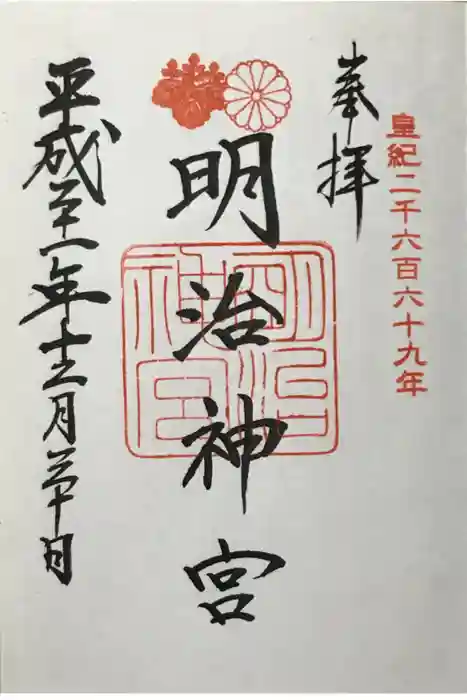 皇紀二千六百六十九年
奉拝
明治神宮
明治
神宮
平成二十一年十二月 日